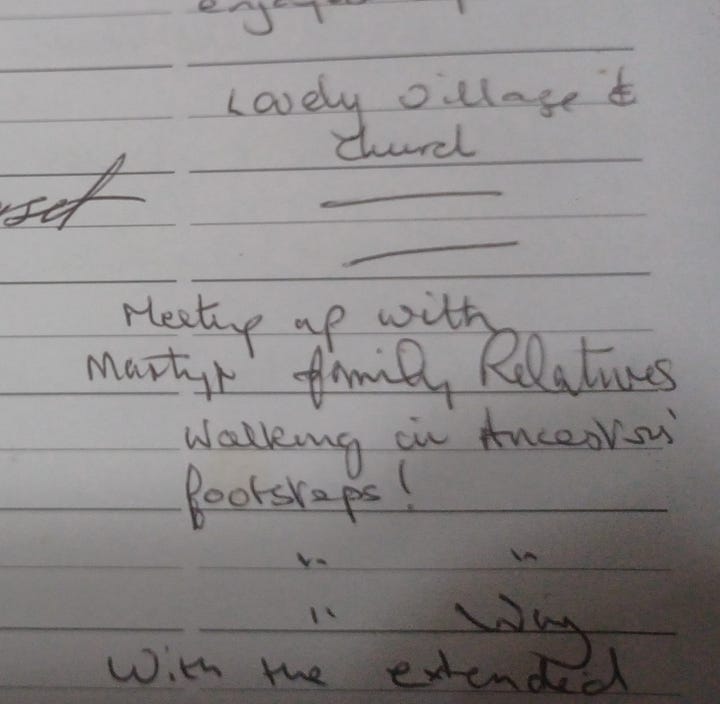 Lovely village &
church
Meeting up with
Martyn family Relatives
Walking in Ancestors'
footsteps!
" "
"
With the extended